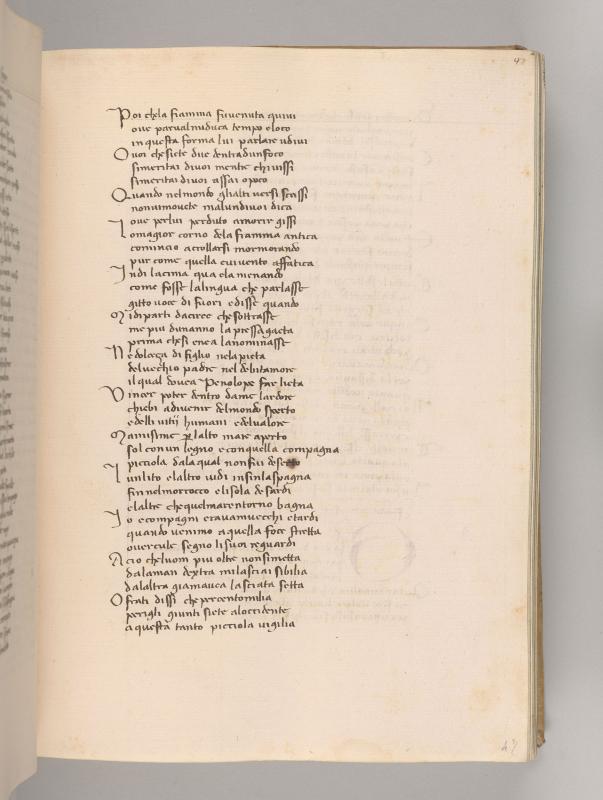 47
Poi chela fiamma fuvenuta quivi
ove parvalmiduca tempo eloco
inquesta forma lui parlare udivi
O voi chesiete due dentradunfoco
simeritai divoi mentre chivissi
simeritai divoi assai opoco
Quando nelmondo glialti versi scrissi
nonvimovete malundivoi dica
ove perlui perduto amorir gissi
Lomagior corno dela fiamma antica
comincio acrollarsi mormorando
pur come quella cuivento affatica
Indi lacima qua ela menando
come fosse lalingua che parlasse
gitto voce di fuori edisse quando
Midiparti dacirce chesottrasse
me piu dunanno la presseagaeta
prima chesi enea lanominasse
Ne dolceça di figlio nelapieta
delvechio padre nel debitamore
ilqual dovea Penolope far lieta
Vincer poter dentro dame lardore
chiebi adivenir delmondo sperto
edelli vitij humani edelvalore
Mamisime per lalto mare aperto
sol conun legno econquella compagna
picciola dalaqual nonfui deserto
Lunlito elaltro vidi infinlaspagna
finnelmorrocco elisola desardi
elaltre chequelmarentorno bagna
Io ecompagni eravamvecchi etardi
quando venimo aquella foce stretta
overcule segno lisuoi reguardi
Acio chelvom piu oltre nonsimetta
dalaman dextra milasciai sibilia
dalaltra giamavea lasciata setta
O frati dissi chepercentomilia
perigli giunti siete aloccidente
aquesta tanto picciola vigilia